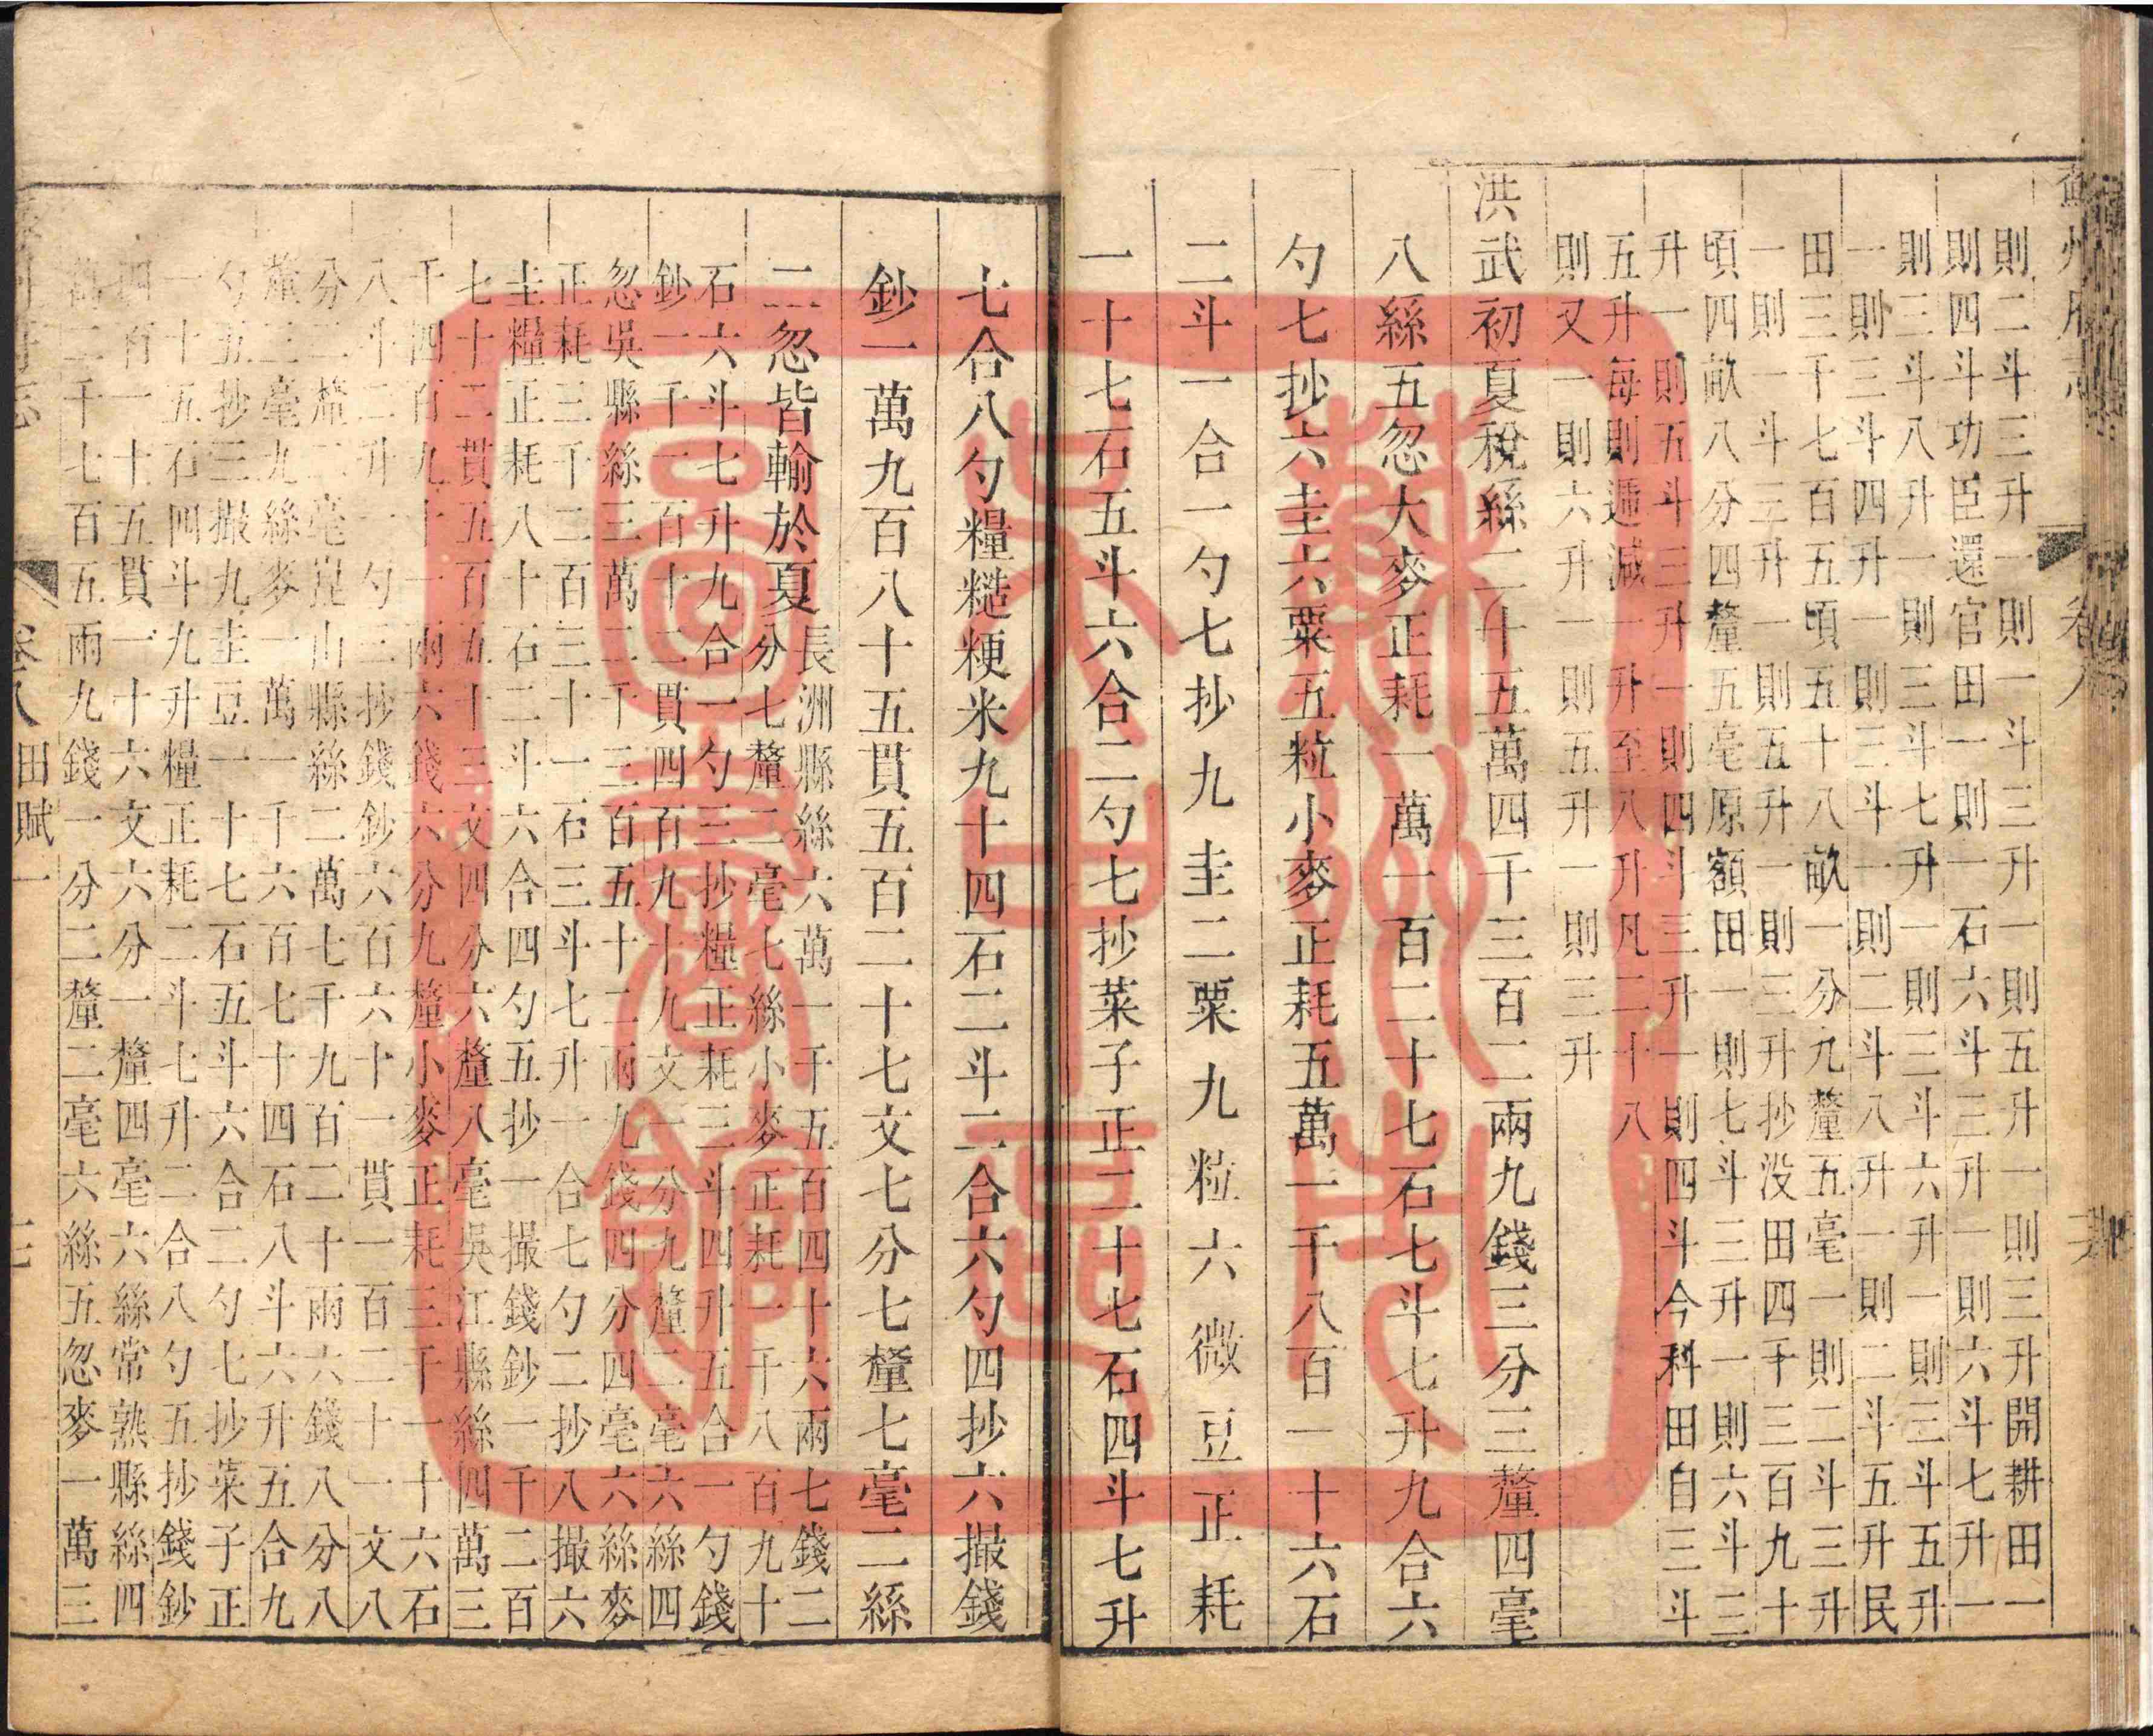 則二斗三升一則一斗三升一則五升一則三升開耕田一
則四斗功臣還官田一則一石六斗三升一則六斗七升一
則三斗八升一則三斗七升一則三斗六升一則三斗五升
一則三斗四升一則三斗一則二斗八升一則二斗五升民
田三千七百五頃五十八畝一分九釐五毫一則二斗三升
一則一斗三升一則五升一則三升抄没田四千三百九十
頃四畝八分四釐五毫原額田一則七斗三升一則六斗三
升一則五斗三升一則四斗三升一則四斗今科田自三斗
五升每則遞減一升至八升凡二十八
則又一則六升一則五升一則三升
洪武初夏稅絲二十五萬四千三百二兩九錢三分三釐四毫
八絲五忽大麥正耗一萬一百二十七石七斗七升九合六
勺七抄六圭六粟五粒小麥正耗五萬一千八百一十六石
二斗一合一勺七抄九圭二粟九粒六微豆正耗
一十七石五斗六合二勺七抄菜子正二十七石四斗七升
七合八勺糧糙粳米九十四石二斗二合六勺四抄六撮錢
鈔一萬九百八十五貫五百二十七文七分七釐七毫二絲
二忽皆輸於夏
長洲縣絲六萬一千五百四十六兩七錢二
分七釐二毫七絲小麥正耗一千八百九十
石六斗七升九合一勺三抄糧正耗三斗四升五合一勺錢
鈔一千一百十二貫四百九十九文一分九釐二毫六絲四
忽吳縣絲三萬二千三百五十二兩九錢四分四毫六絲麥
正耗三千二百三十一石三斗七升一合七勺二抄八撮六
圭糧正耗八十石二斗六合四勺五抄一撮錢鈔一千二百
七十二貫五百五十三文四分六釐八毫吳江縣絲四萬三
千四百九十一兩六錢六分九釐小麥正耗三千一十六石
八斗二升一勺三抄錢鈔六百六十一貫一百二十一文八
分二釐二毫崑山縣絲二萬七千九百二十兩六錢八分八
釐三毫九絲麥一萬一千六百七十四石八斗六升五合九
勺五抄三撮九圭豆一十七石五斗六合二勺七抄菜子正
一十五石四斗九升糧正耗二斗七升二合八勺五抄錢鈔
四百一十五貫一十六文六分一釐四毫六絲常熟縣絲四
萬二千七百五兩九錢一分二釐二毫六絲五忽麥一萬三
卷八
田賦一